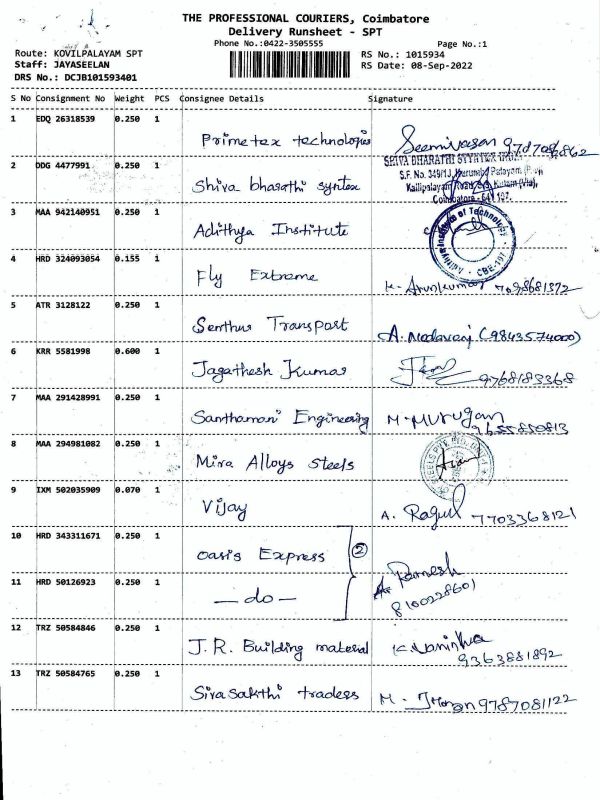 THE PROFESSIONAL COURIERS, Coimbatore
Delivery Runsheet - SPT
Phone No.:0422-3505555 Page No.:1
Route: KOVILPALAYAM SPT RS No.: 1015934
Staff: JAYASEELAN RS Date: 08-Sep-2022
DRS No.: DCJB101593401
S No Consignment No Weight PCS Consignee Details Signature
1 EDQ 26318539 0.250 1
Primetex technologies
2 DDG 4477991 0.250 1 SHIVA BHARATHI
Shiva bharathi syntex S.F. No.
Coimbatore - 641 197.
3 MAA 942140951 0.250 1
Adithya Institute Institute of Technology CBE-
4 HRD 324093054 0.155 1
Fly Extreme K. Arunkumar 7098681372
5 ATR 3128122 0.250 1
Senthur Transport (9843574000)
6 KRR 5581998 0.600 1
Jagathesh Kumar 9768183368
7 MAA 291428991 0.250 1
Santhamani Engineering M. Murugan
9655850813
8 MAA 294981082 0.250 1
Mira Alloys Steels
9 IXM 502035909 0.070 1
Vijay A. Ragul 7703368121
10 HRD 343311671 0.250 1
Oasis Express 2
11 HRD 50126923 0.250 1 A. Ramesh
- do - 8100228601
12 TRZ 50584846 0.250 1
J.R. Building material
9363881892
13 TRZ 50584765 0.250 1
Sivasakthi traders M. 9787081122